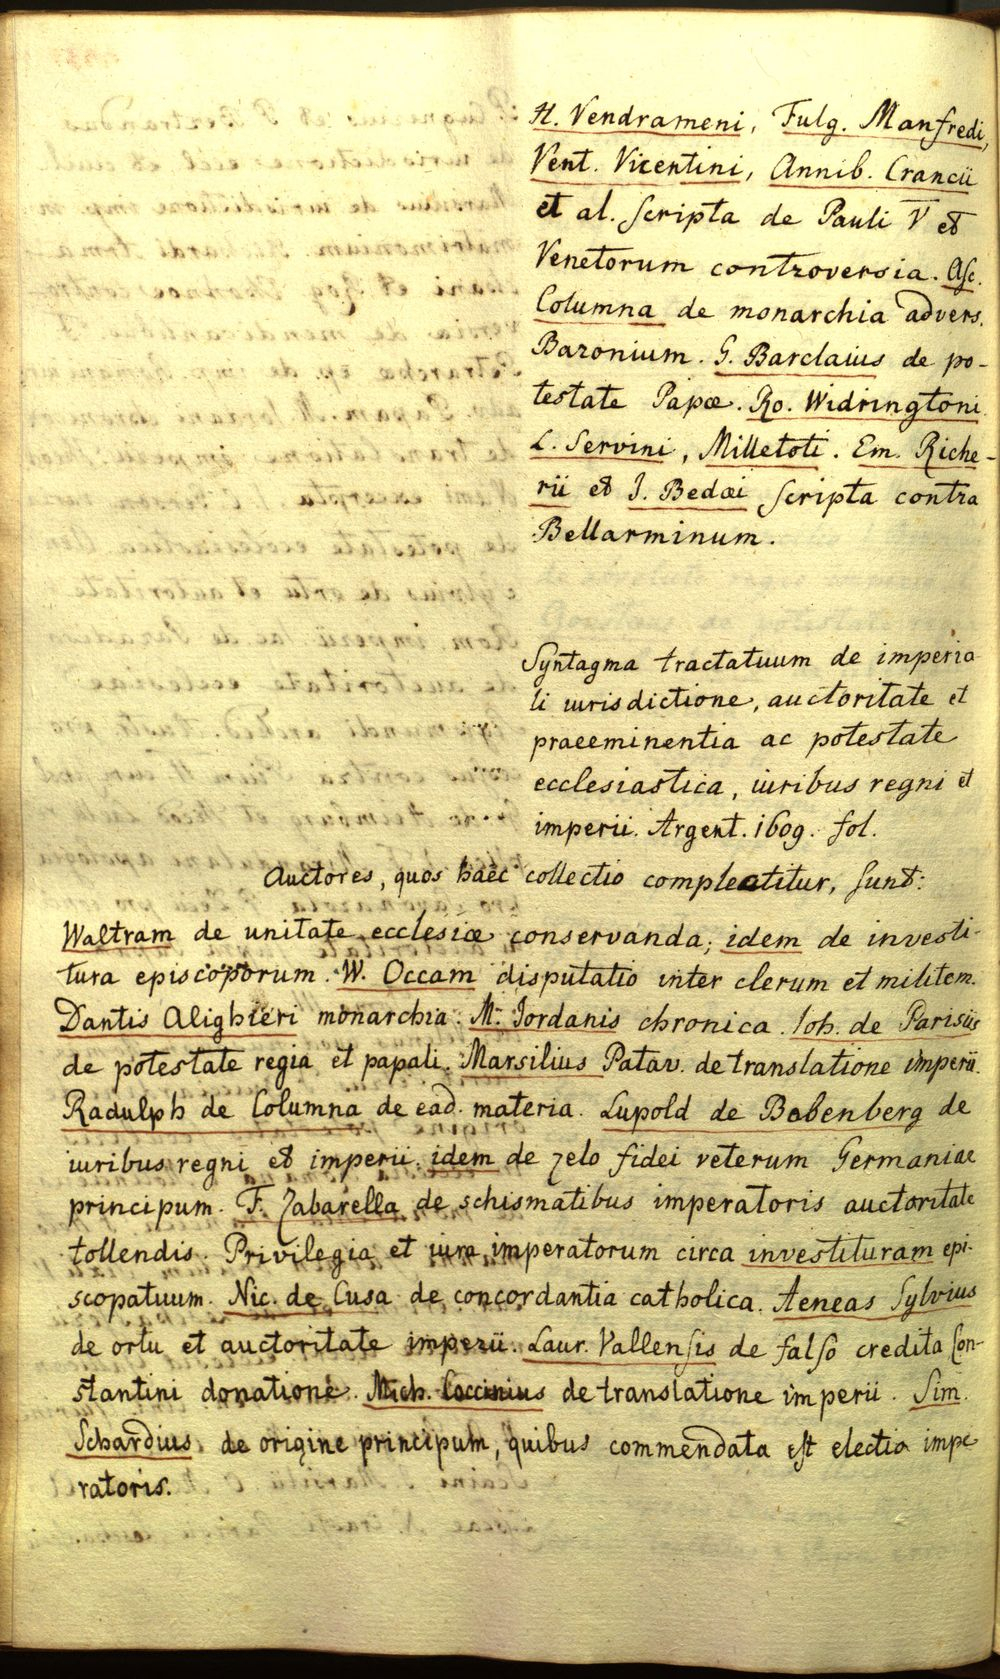 H. Vendrameni, Fulg. Manfredi,
Vent. Vicentini, Annib. Crancii
et al. scripta de Pauli V et
Venetorum controversia. Asc.
Columna de monarchia advers.
Baronium. G. Barclaius de po-
testate Papæ. Ro. Widringtoni.
L. Servini, Milletoti. Em. Riche-
rii et J. Bedæi scripta contra
Bellarminum.
Syntagma tractatuum de imperia
li iurisdictione, auctoritate et
praeeminentia ac potestate
ecclesiastica, iuribus regni et
imperii. Argent. 1609. fol.
Auctores, quos haec collectio complectitur, sunt:
Waltram de unitate ecclesiæ conservanda; idem de investi-
tura episcoporum. W. Occam disputatio inter clerum et militem.
Dantis Alighieri monarchia. M. Jordanis chronica. Ioh. de Parisiis
de potestate regia et papali. Marsilius Patav. de translatione imperii.
Radulph de Columna de ead. materia. Lupold de Bebenberg de
iuribus regni et imperii; idem de zelo fidei veterum Germaniae
principum. F. Zabarella de schismatibus imperatoris auctoritate
tollendis. Privilegia et iura imperatorum circa investituram epi-
scopatuum. Nic. de Cusa de concordantia catholica. Aeneas Sylvius
de ortu et auctoritate imperii. Laur. Vallensis de falso credita Con-
stantini donatione. Mich. Coccinius de translatione imperii. Sim.
Schardius de origine principum, quibus commendata est electio impe
ratoris.